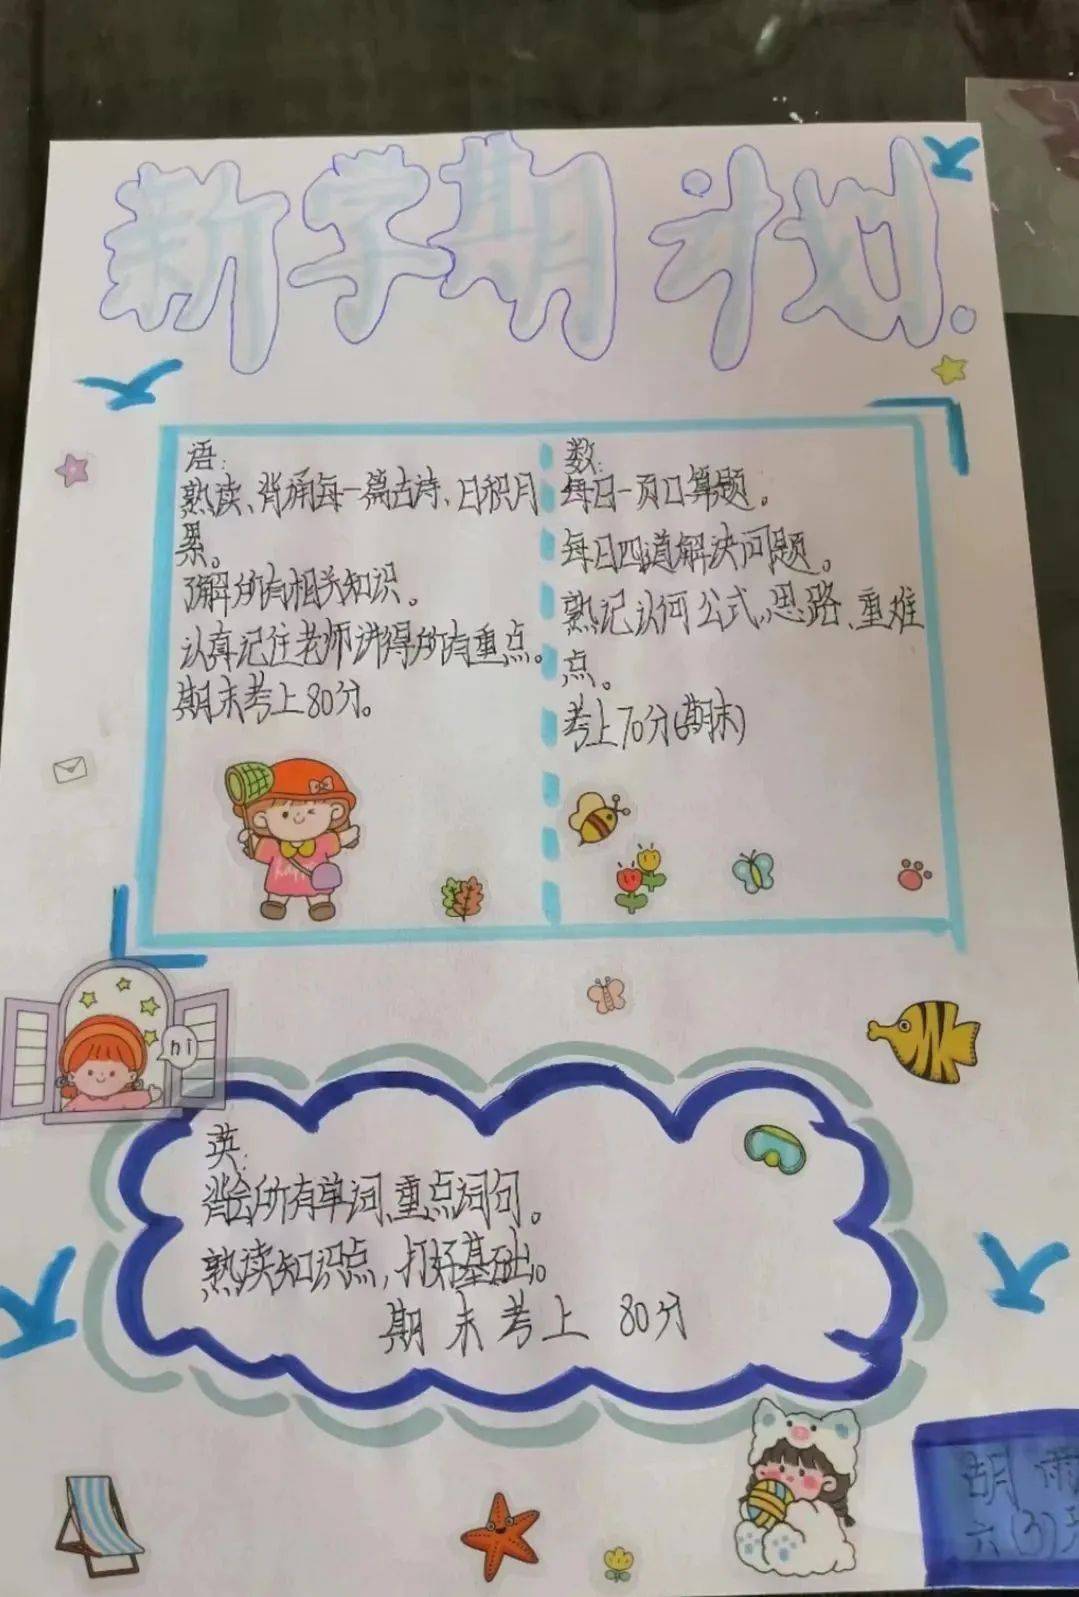 新学期计划.
语:
熟读、背诵每一篇古诗、日积月
累。
了解所有相关知识。
认真记住老师讲得所有重点。
期末考上80分。
数:
每日一页口算题。
每日四道解决问题。
熟记认何公式、思路、重难
点。
考上70分(期末)
hi
英:
背会所有单词、重点词句。
熟读知识点,打好基础。
期末考上 80分
happy
胡雨
六(3)